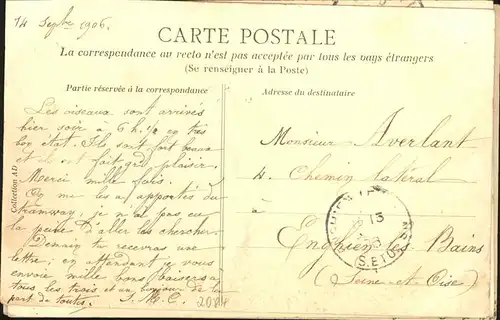 14 Septbre 1906.
CARTE POSTALE
La correspondance au recto n'est pas acceptée par tous les pays étrangers
(Se renseigner à la Poste)
Partie réservée à la correspondance
Adresse du destinataire
Les oiseaux sont arrivés
hier soir à 6 h. 1/2 en très
bon état. Ils sont fort beaux
et ils ont fait grd plaisir.
Merci mille fois.
On me les a apportés du
tramway, je n'ai pas eu
la peine d'aller les chercher.
Demain tu recevras une
lettre; en attendant je vous
envoie mille bons baisers à
tous les trois et un bonjour de la
part de toutes. J. M. C. 2084
Monsieur Averlant
4. Chemin latéral
à
Enghien les Bains
(Seine-et-Oise)
13
S.ET.O
Collection AD